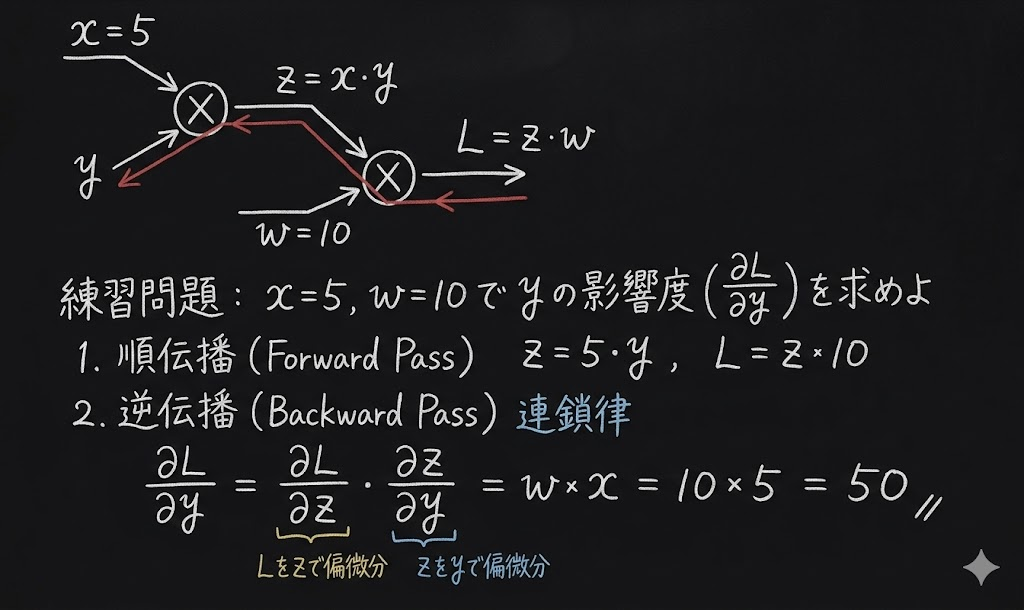 x=5
z=x·y
L=z·w
y
w=10
練習問題: x=5, w=10でyの影響度(∂L/∂y)を求めよ
1. 順伝播(Forward Pass) z=5·y, L=z×10
2. 逆伝播(Backward Pass) 連鎖律
∂L/∂y = ∂L/∂z · ∂z/∂y = w×x = 10×5 = 50 //
Lをzで偏微分 zをyで偏微分